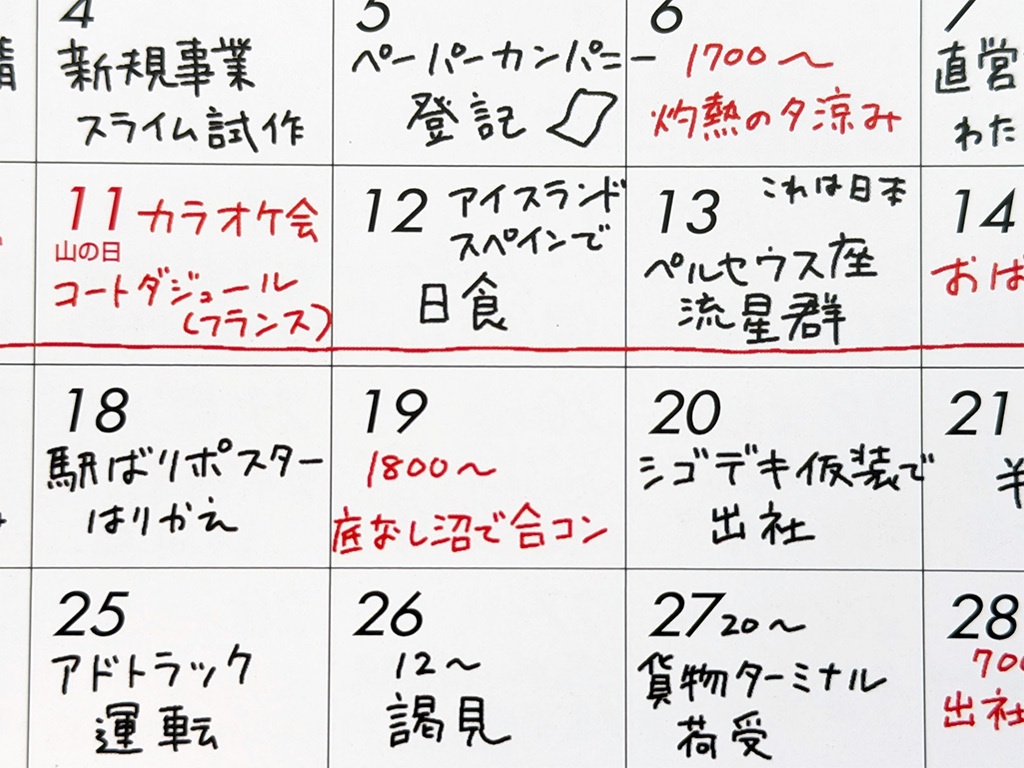 4
新規事業
スライム試作
5
ペーパーカンパニー
登記
6
1700〜
灼熱の夕涼み
7
直営
わた
11 カラオケ会
山の日
コートダジュール
(フランス)
12 アイスランド
スペインで
日食
13 これは日本
ペルセウス座
流星群
14
おば
18
駅ばりポスター
はりかえ
19
1800〜
底なし沼で合コン
20
シゴデキ仮装で
出社
21
羊
25
アドトラック
運転
26
12〜
謁見
27 20〜
貨物ターミナル
荷受
28
700
出社